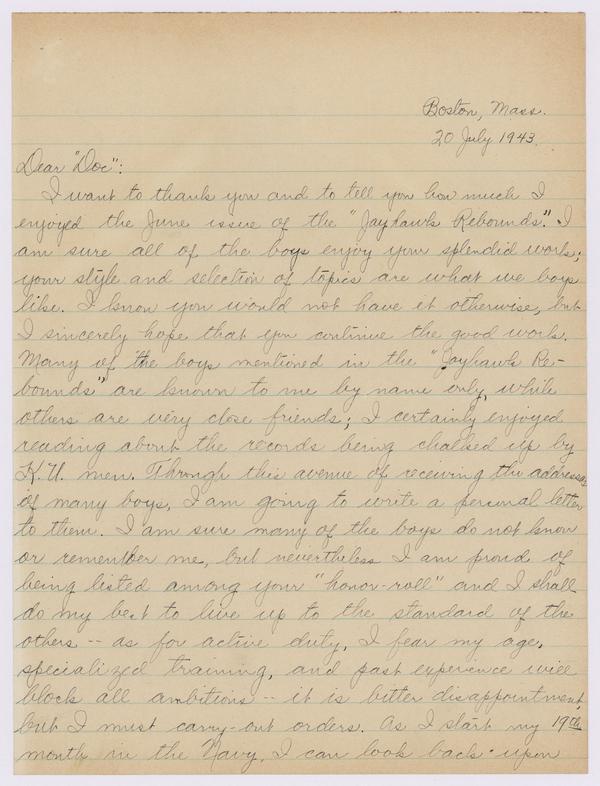 Boston, Mass.
20 July 1943.
Dear "Doc":
I want to thank you and to tell you how much I
enjoyed the June issue of the "Jayhawk Rebounds." I
am sure all of the boys enjoy your splendid work;
your style and selection of topics are what we boys
like. I know you would not have it otherwise, but
I sincerely hope that you continue the good work.
Many of the boys mentioned in the "Jayhawk Re-
bounds" are known to me by name only, while
others are very close friends; I certainly enjoyed
reading about the records being chalked up by
K.U. men. Through this avenue of receiving the addresses
of many boys, I am going to write a personal letter
to them. I am sure many of the boys do not know
or remember me, but nevertheless I am proud of
being listed among your "honor-roll" and I shall
do my best to live up to the standard of the
others -- as for active duty, I fear my age,
specialized training, and past experience will
block all ambitions -- it is bitter disappointment,
but I must carry-out orders. As I start my 19th
month in the Navy, I can look back upon